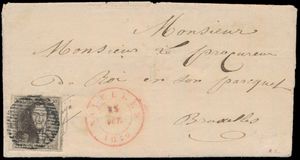 Monsieur
Monsieur le procureur
du Roi en son parquet
Bruxelles
15